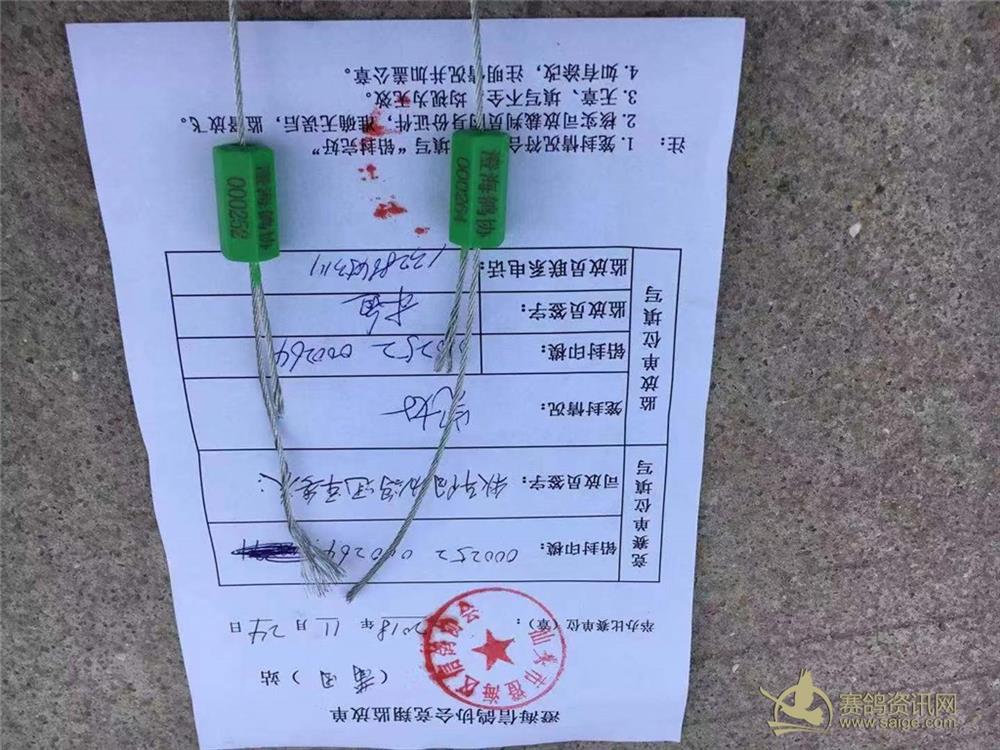 澄海信鸽协会竞翔监放单
（莆田）站
举办比赛单位（章）： 2018 年 11 月 24 日
汕头市澄海区信鸽协会
竞赛单位填写
铅封印模： 000252 000264
司放员签字：
监放单位填写
笼封情况： 完好
铅封印模： 000252 000264
监放员签字：
监放员联系电话：
注： 1. 笼封情况符合 填写“铅封完好”
2. 核实司放裁判员的身份证件，准确无误后，监督放飞。
3. 无章、填写不全，均视为无效。
4. 如有涂改，注明情况并加盖公章。
澄海鸽协
000252
澄海鸽协
000264
赛鸽资讯网
www.saige.com